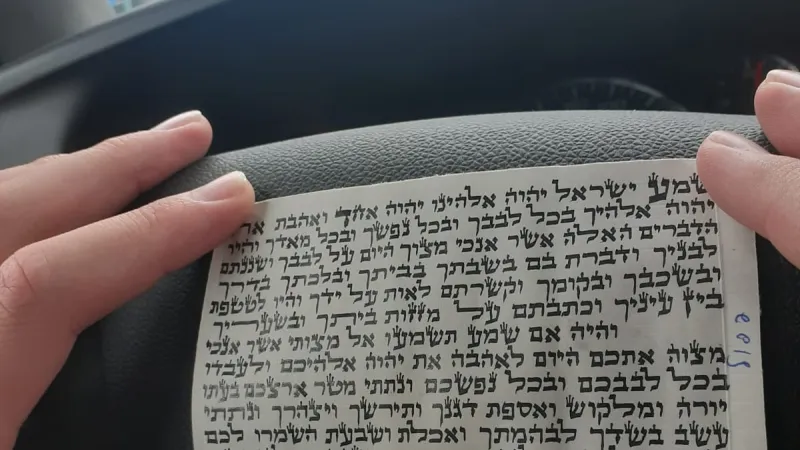 שמע ישראל יהוה אלהינו יהוה אחד ואהבת את
יהוה אלהיך בכל לבבך ובכל נפשך ובכל מאדך והיו
הדברים האלה אשר אנכי מצוך היום על לבבך ושננתם
לבניך ודברת בם בשבתך בביתך ובלכתך בדרך
ובשכבך ובקומך וקשרתם לאות על ידך והיו לטטפת
בין עיניך וכתבתם על מזזות ביתך ובשעריך
והיה אם שמע תשמעו אל מצותי אשר אנכי
מצוה אתכם היום לאהבה את יהוה אלהיכם ולעבדו
בכל לבבכם ובכל נפשכם ונתתי מטר ארצכם בעתו
יורה ומלקוש ואספת דגנך ותירשך ויצהרך ונתתי
עשב בשדך לבהמתך ואכלת ושבעת השמרו לכם